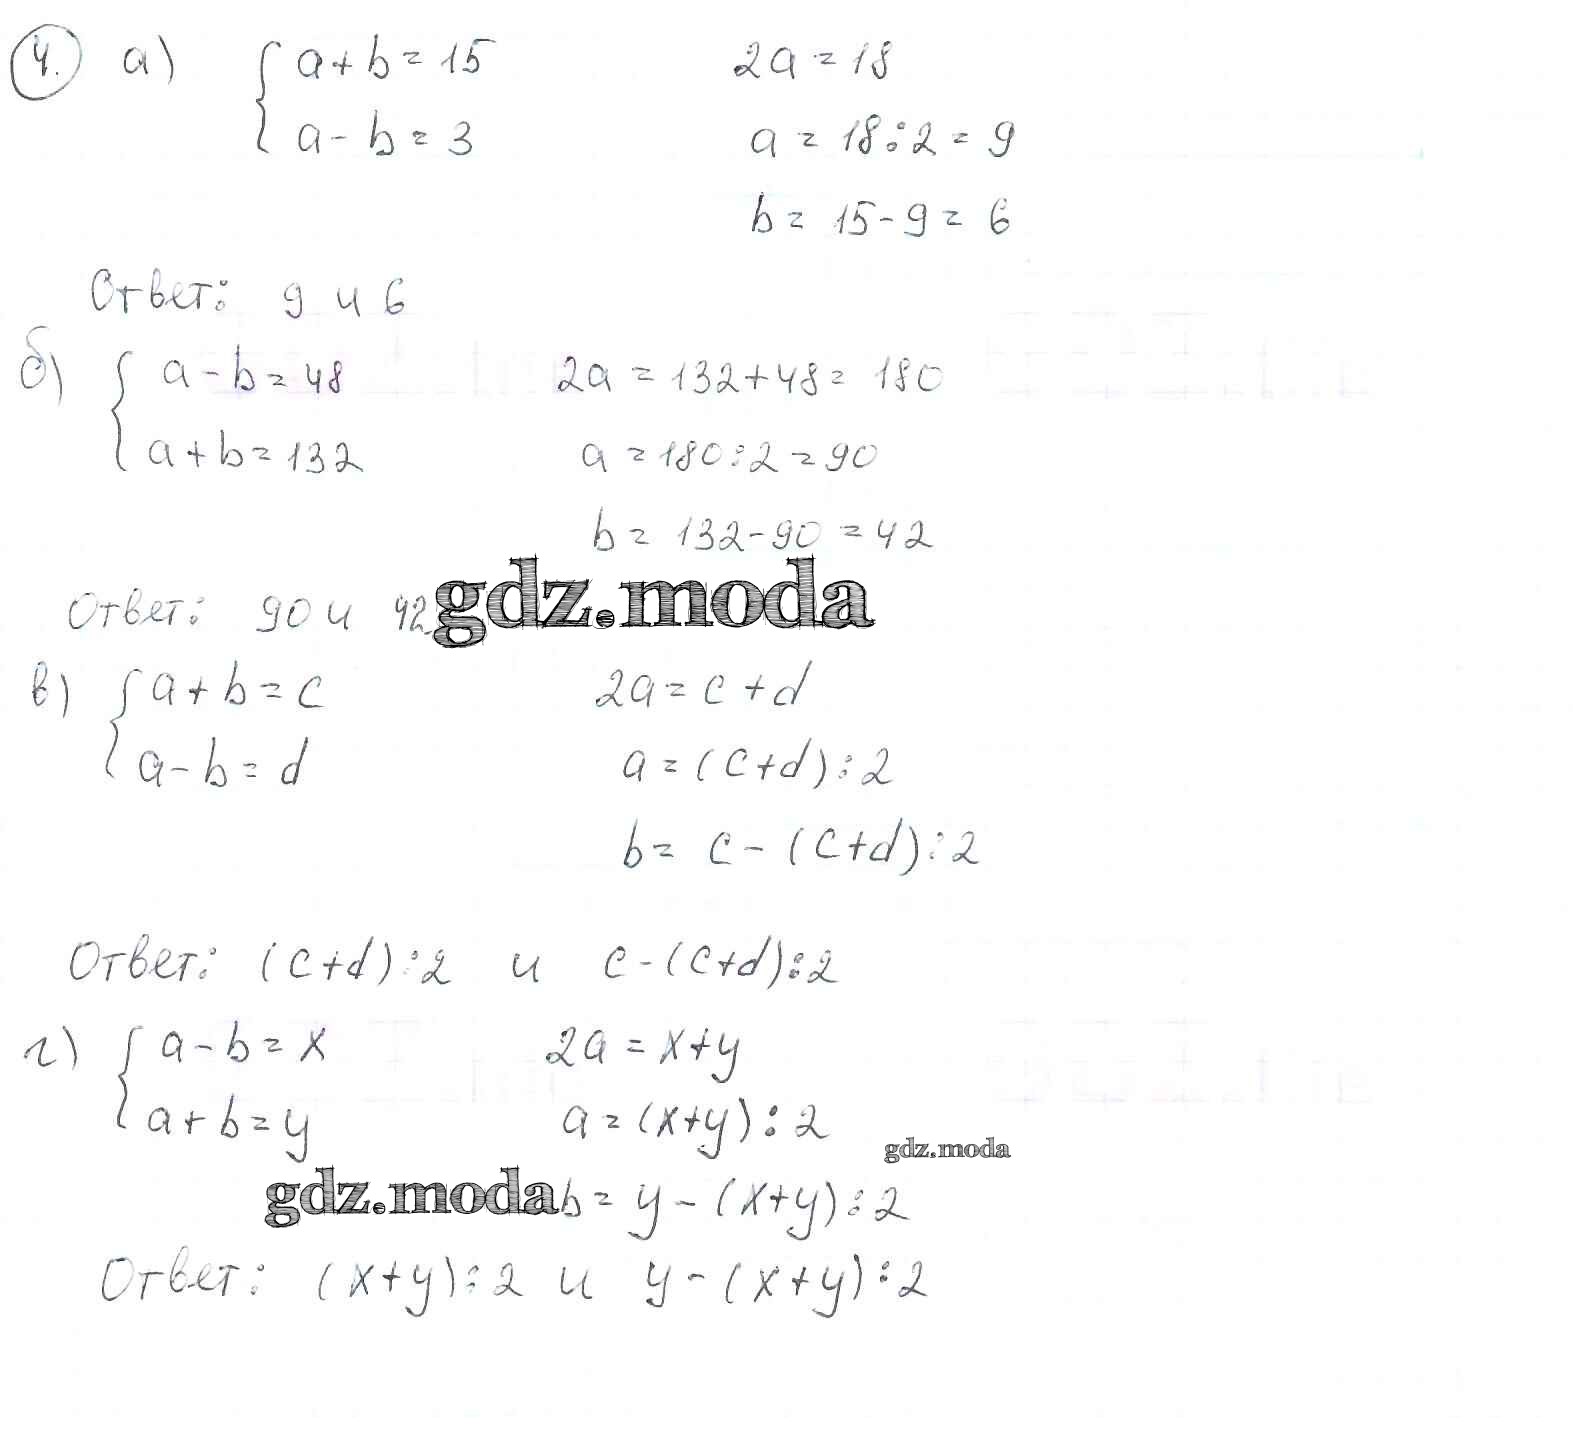 4. а) { a + b = 15 2a = 18
a - b = 3 a = 18 : 2 = 9
b = 15 - 9 = 6
Ответ: 9 и 6
б) { a - b = 48 2a = 132 + 48 = 180
a + b = 132 a = 180 : 2 = 90
b = 132 - 90 = 42
Ответ: 90 и 42 gdz.moda
в) { a + b = c 2a = c + d
a - b = d a = (c + d) : 2
b = c - (c + d) : 2
Ответ: (c + d) : 2 и c - (c + d) : 2
г) { a - b = x 2a = x + y
a + b = y a = (x + y) : 2
gdz.moda
gdz.moda b = y - (x + y) : 2
Ответ: (x + y) : 2 и y - (x + y) : 2